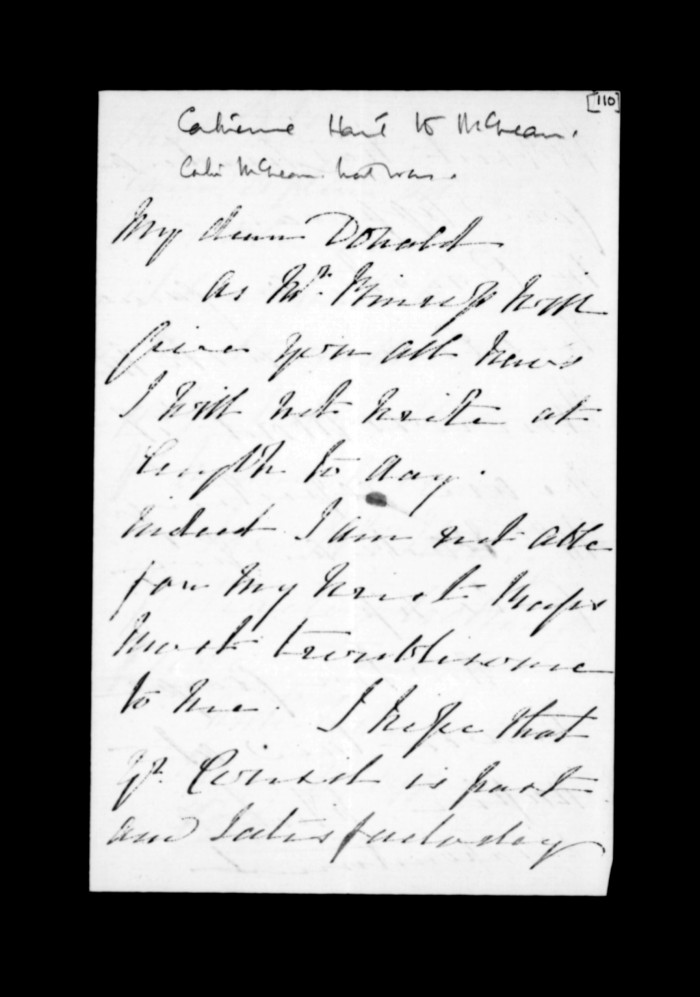 [110]
Catherine Hart to McLean.
Colin McLean
My dear Donald
as Mr. Kinross will
give you all news
I will not write at
length to day.
indeed I am not able
for my wrist keeps
most troublesome
to me. I hope that
yr. Council is past
and satisfactorily